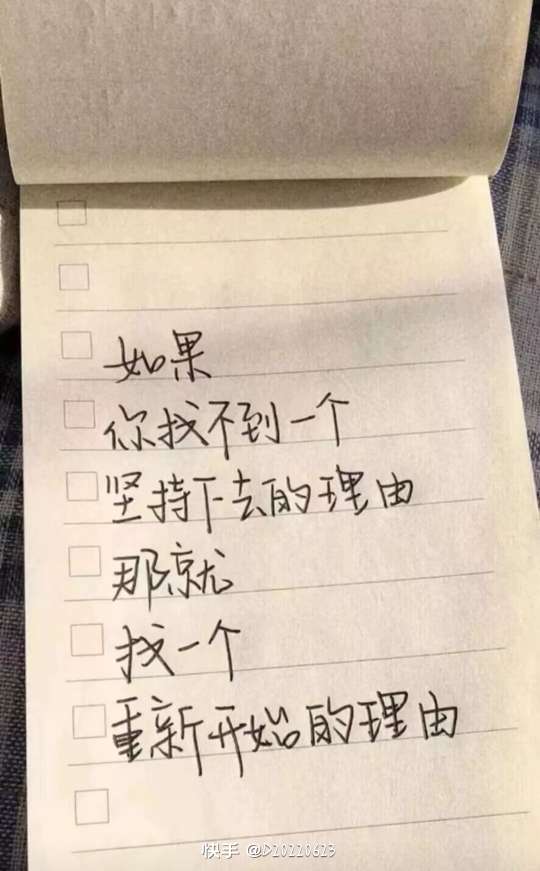 如果
你找不到一个
坚持下去的理由
那就
找一个
重新开始的理由
快手 @D20220623